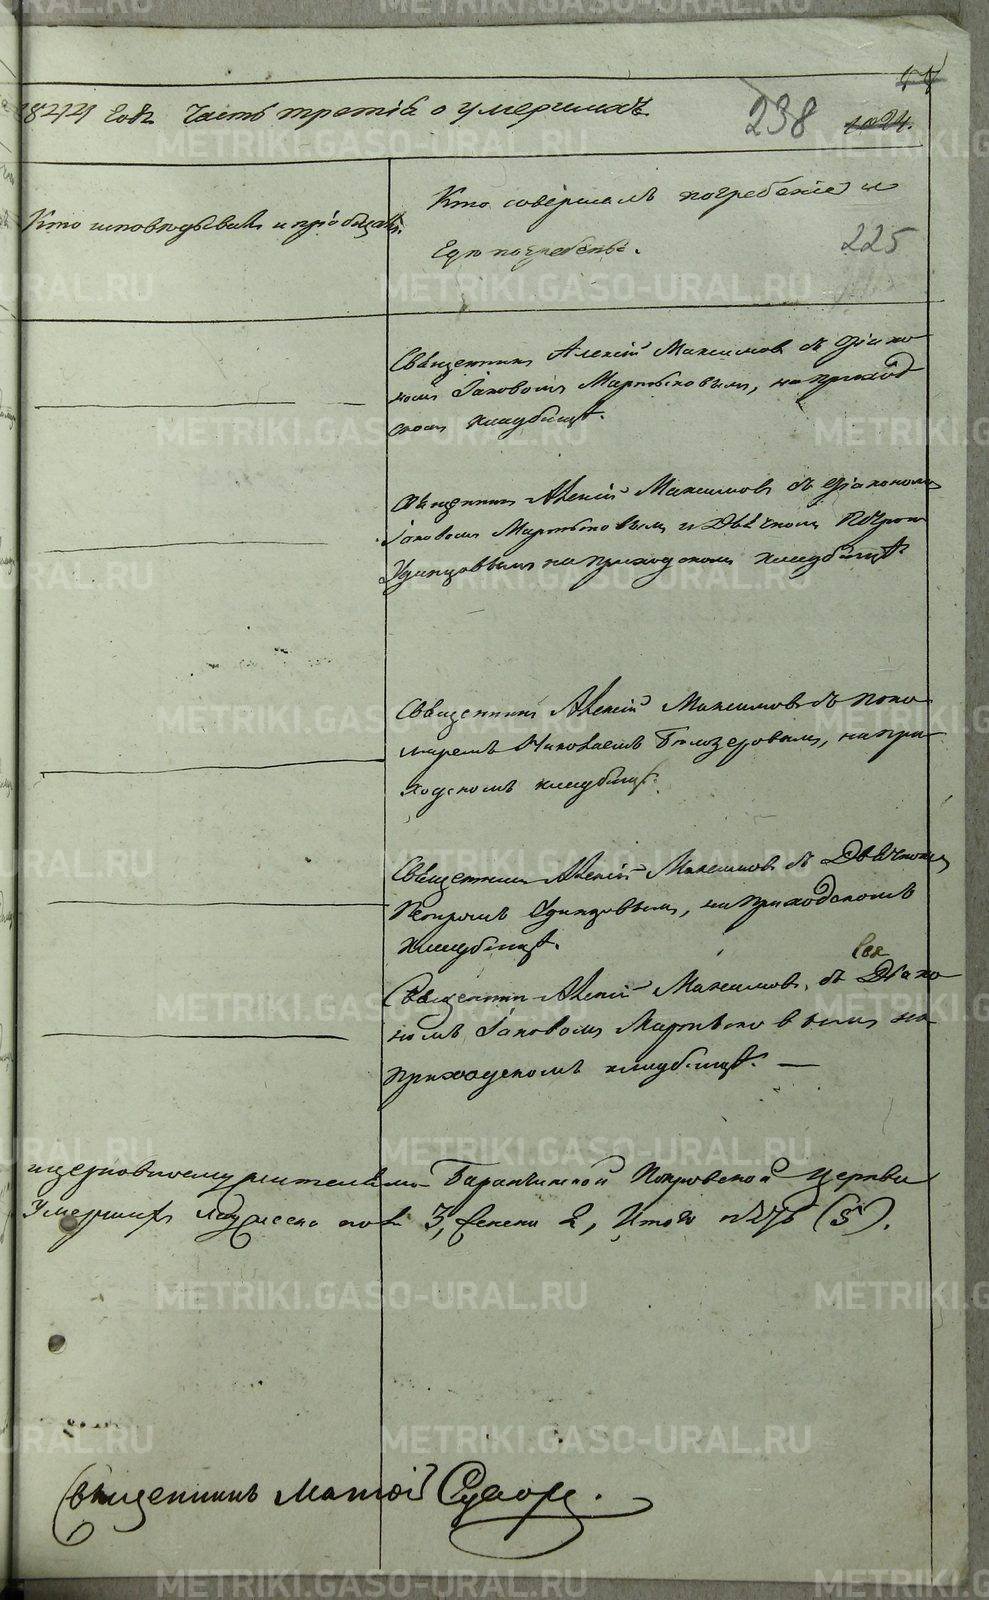 1844 года Часть третія о умершихъ
238
225
Кто исповѣдывалъ и пріобщалъ.
Кто совершалъ погребеніе и
гдѣ погребены.
Священникъ Алексій Максимовъ съ діако
номъ Іаковомъ Мартыновымъ, на приход
скомъ кладбищѣ.
Священникъ Алексій Максимовъ съ діакономъ
Іаковомъ Мартыновымъ и Дьячкомъ Петромъ
Удинцовымъ на приходскомъ кладбищѣ.
Священникъ Алексій Максимовъ съ поно
маремъ Николаемъ Бѣлозеровымъ, на при
ходскомъ кладбищѣ.
Священникъ Алексій Максимовъ съ Дьячкомъ
Петромъ Удинцовымъ, на приходскомъ
кладбищѣ.
Священникъ Алексій Максимовъ, съ Діако
номъ Іаковомъ Мартыновымъ на
приходскомъ кладбищѣ. —
Баранчинской Покровской церкви
Умершихъ мужеска пола 3, женска 2, Итого (5).
Священникъ
METRIKI.GASO-URAL.RU